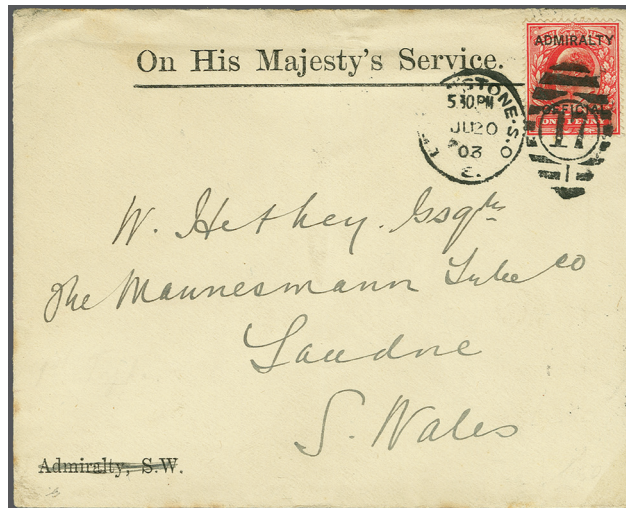 ADMIRALTY
On His Majesty's Service.
OFFICIAL
ONE PENNY
STONE·S.O
5.30.PM
JU 20
03
E.
11
W. Hethey. Esqre
The Mannesmann Tube Co
Landore
S. Wales
Admiralty, S.W.